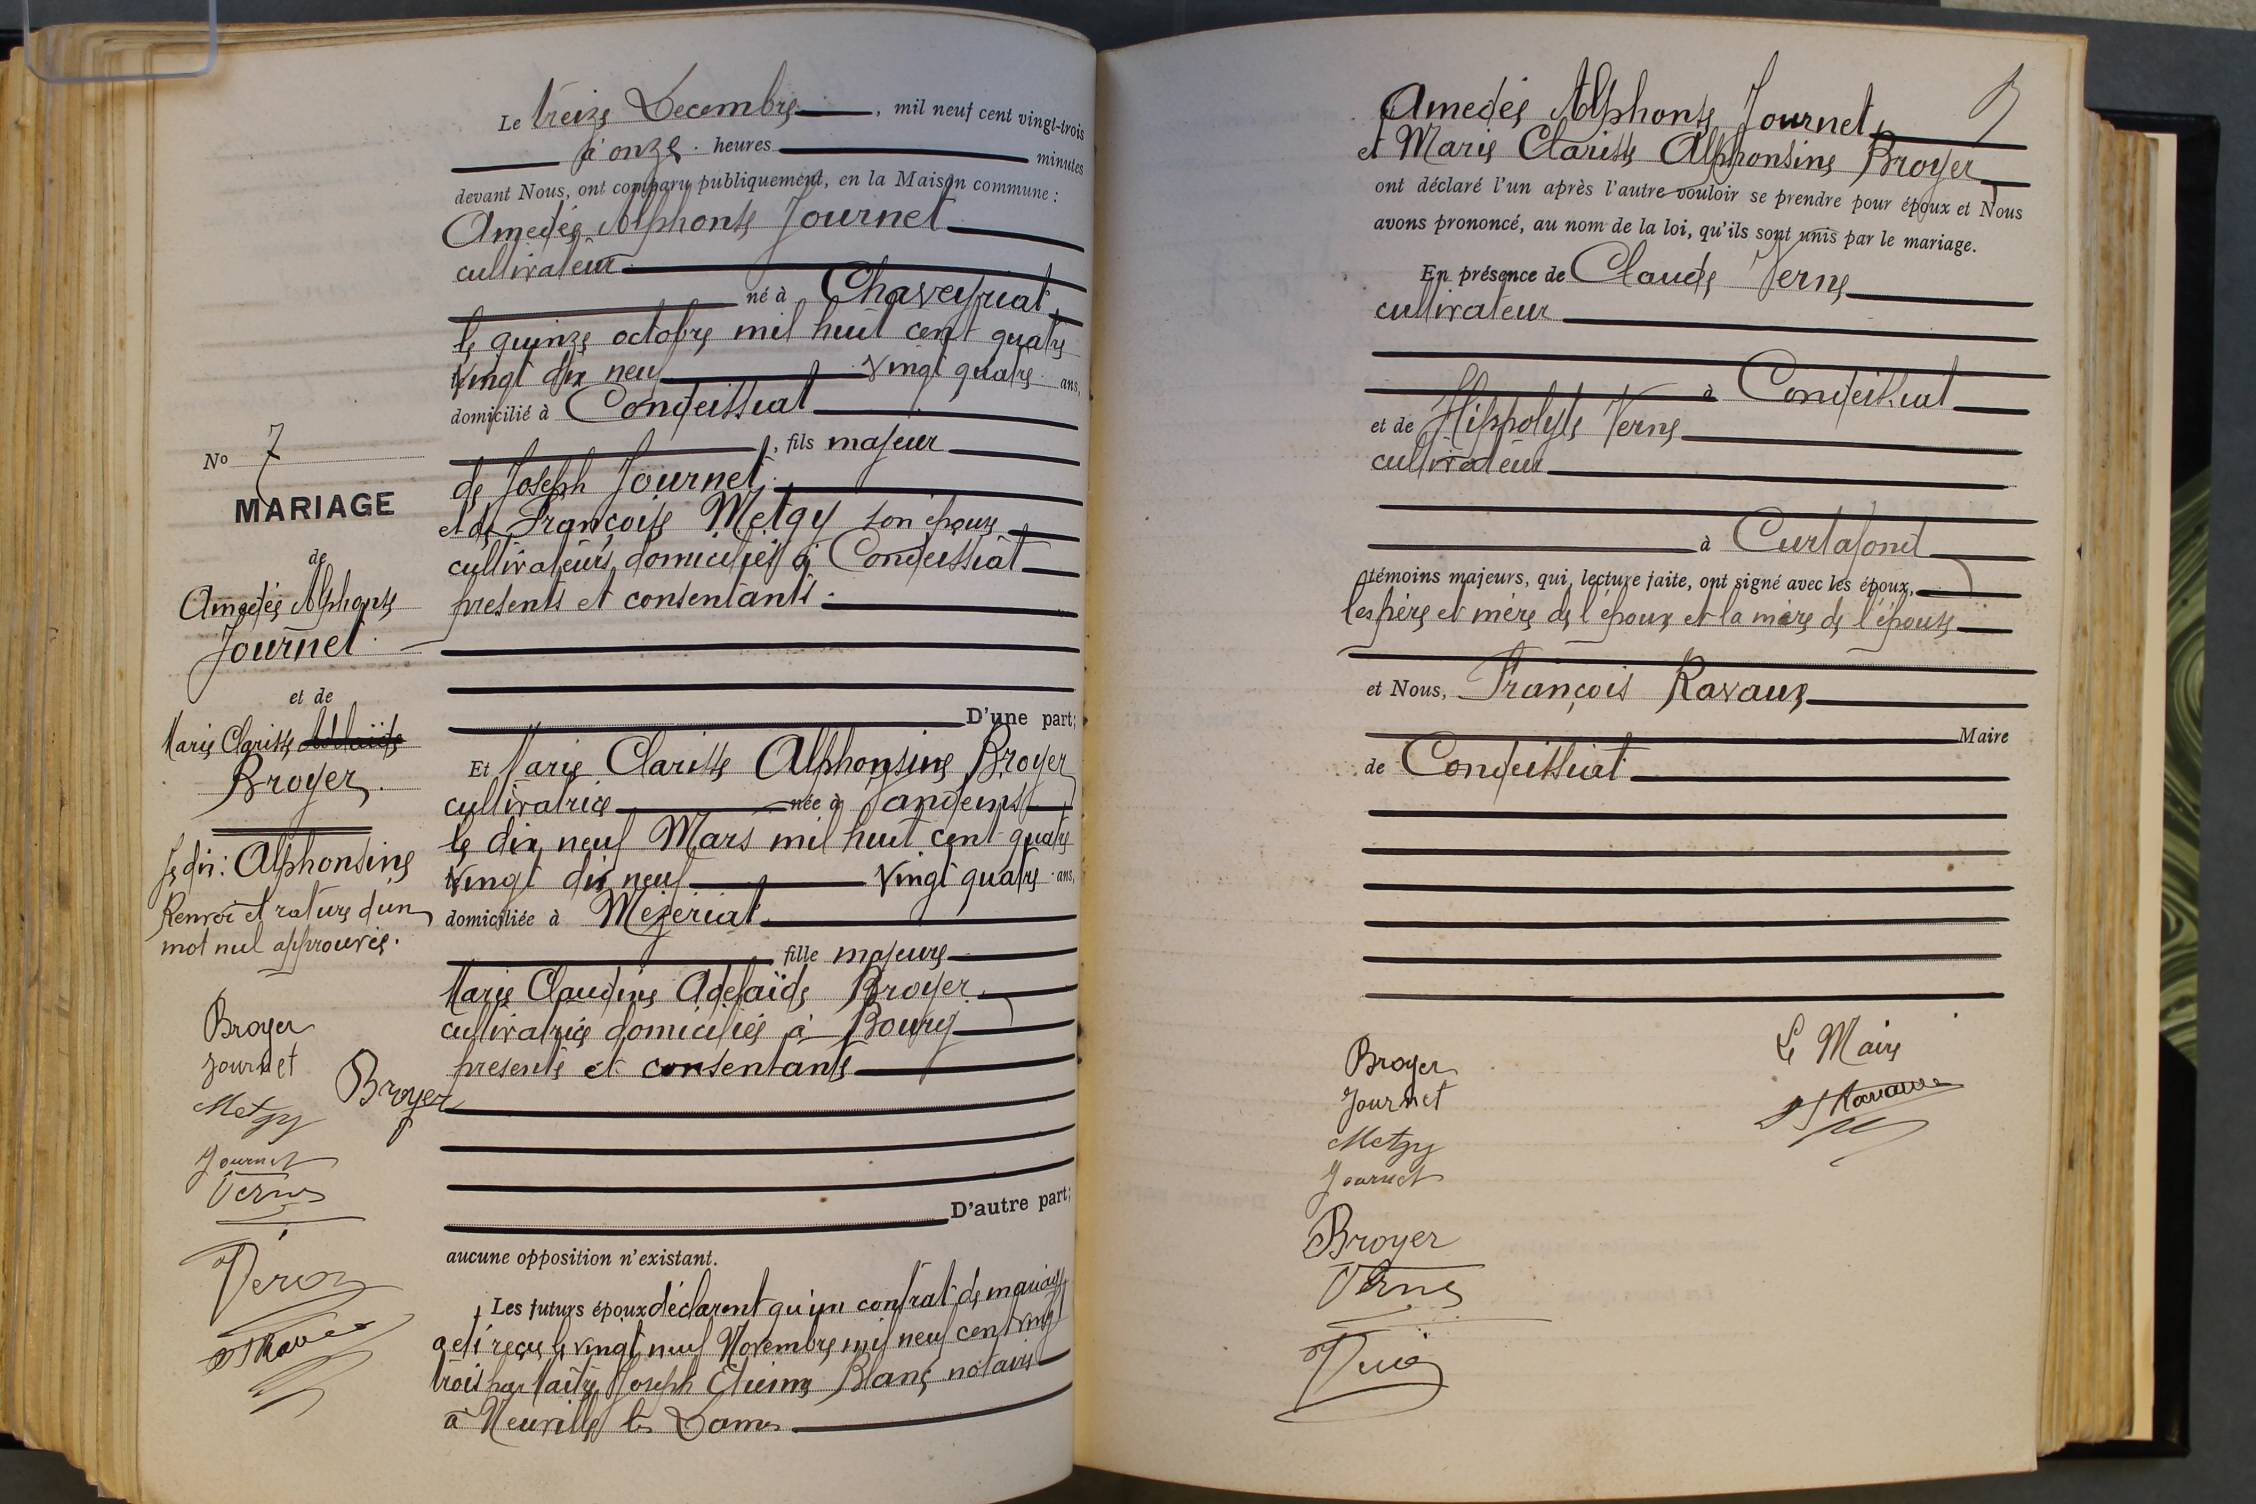 Le treize Decembre, mil neuf cent vingt-trois
à onze heures minutes
devant Nous, ont comparu publiquement, en la Maison commune :
Amedée Alphonse Journet
cultivateur
né à Chaveyriat
le quinze octobre mil huit cent quatre
vingt dix neuf vingt quatre ans,
domicilié à Condeissiat
, fils majeur
de Joseph Journet
et de Françoise Metgy son épouse
cultivateurs domiciliés à Condeissiat
présents et consentants.
D'une part;
Et Marie Clarisse Alphonsine Broyer
cultivatrice née à Vandeins
le dix neuf Mars mil huit cent quatre
vingt dix neuf vingt quatre ans,
domiciliée à Mézériat
fille majeure
Marie Claudine Adélaïde Broyer
cultivatrice domiciliée à Bourg
présents et consentants
D'autre part;
aucune opposition n'existant.
Les futurs époux déclarent qu'un contrat de mariage
a été reçu le vingt neuf Novembre mil neuf cent vingt
trois par Maître Joseph Etienne Blanc notaire
à Neuville les Dames
No 7
MARIAGE
de
Amedée Alphonse
Journet
et de
Marie Clarisse Adélaïde
Broyer.
Je dis : Alphonsine
Renvoi et rature d'un
mot nul approuvés.
Broyer
Journet
Broyer
Metgy
Journet
Verne
F Ravaux
Amedée Alphonse Journet
et Marie Clarisse Alphonsine Broyer
ont déclaré l'un après l'autre vouloir se prendre pour époux et Nous
avons prononcé, au nom de la loi, qu'ils sont unis par le mariage.
En présence de Claude Verne
cultivateur
à Condeissiat
et de Hippolyte Verne
cultivateur
à Curtafond
témoins majeurs, qui, lecture faite, ont signé avec les époux,
les père et mère de l'époux et la mère de l'épouse
et Nous, François Ravaux
Maire
de Condeissiat
Broyer
Journet
Metgy
Journet
Broyer
Verne
Le Maire
F Ravaux